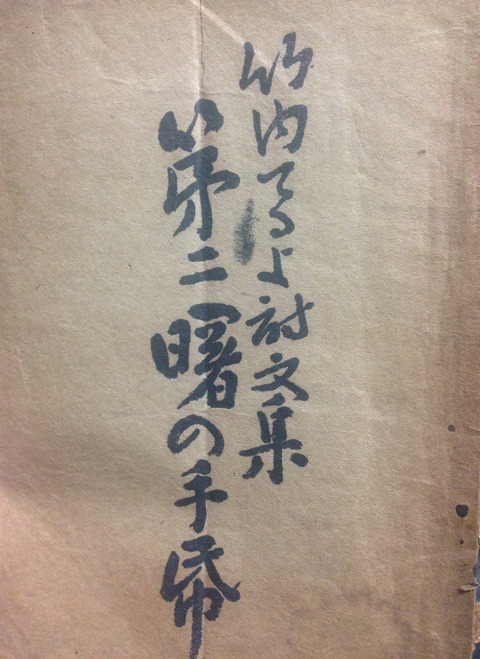 竹内てるよ詩文集
第二曙の手帋